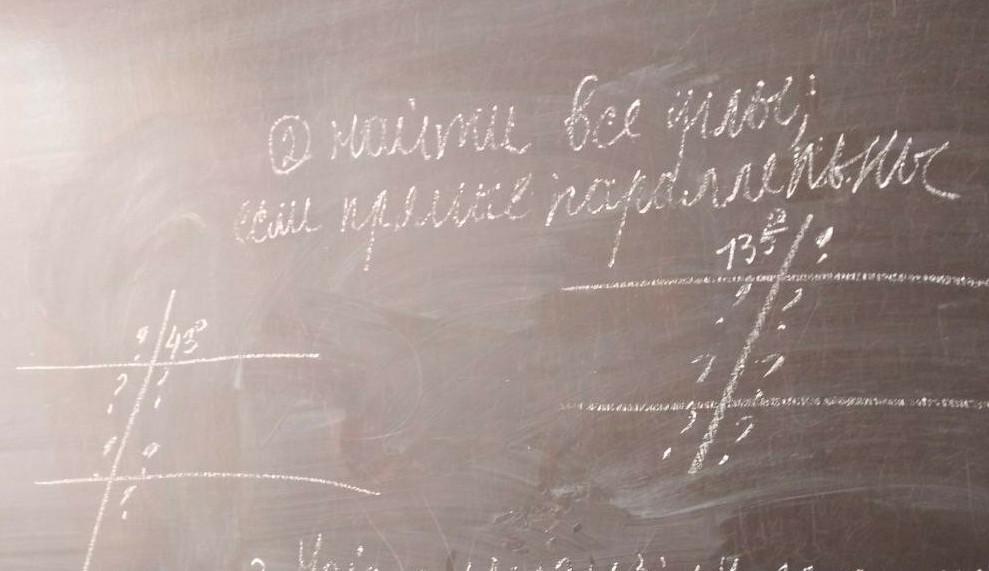 ② найти все углы,
если прямые параллельны
135°
?
43°
?
? ?
? ?
? ?
? ?
? ?
? ?
?